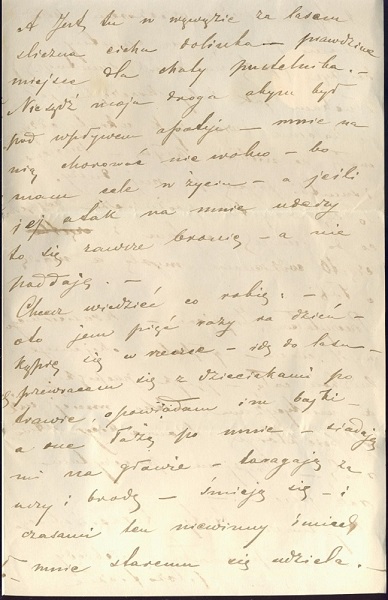 A Jest tu w wąwozie za lasem
śliczna cicha dolinka – prawdziwe
miejsce dla chaty pustelnika. –
Niesądź moja droga abym był
pod wpływem apatji – mnie na
nią chorować nie wolno – bo
mam cele w życiu – a jeśli
jej atak na mnie uderzy
to się zawsze bronię – a nie
poddaję. –
Chcesz wiedzieć co robię: –
oto jem pięć razy na dzień –
kąpię się w rzece – idę do lasu –
przewracam się z dzieciakami po
trawie opowiadam im bajki –
a one łażą po mnie – siadają
mi na głowie – targają za
uszy i brodę – śmieją się – i
czasami ten niewinny śmiech
mnie staremu się udziela. –